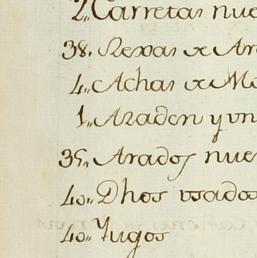 2,, Carretas nue
38,, Rexas de Ar
4,, Achas de Mo
1,, Azadon y un
35,, Arados nue
40,, Dhos usados
40,, Yugos